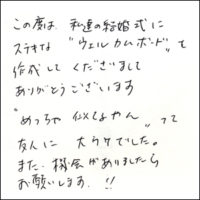 この度は、私達の結婚式に
ステキな"ウェルカムボード"を
作成してくださいまして
ありがとうございます
"めっちゃ似てるやん"って
友人に大ウケでした。
また、機会がありましたら
お願いします。!!